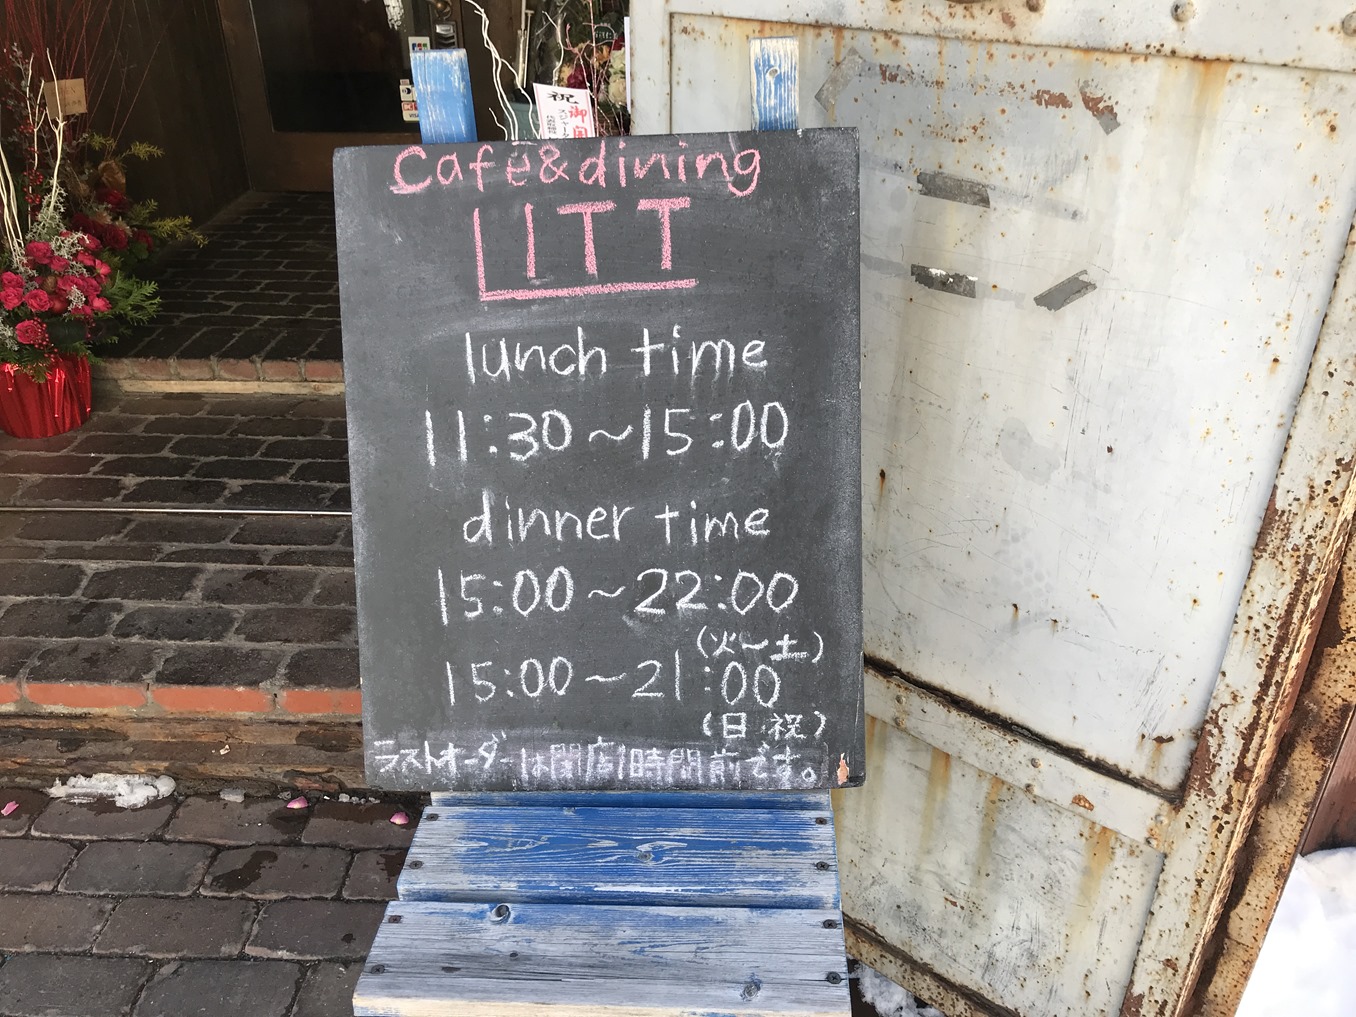 祝
御
JCB
VISA
Cafe&dining
LITT
lunch time
11:30〜15:00
dinner time
15:00〜22:00
(火〜土)
15:00〜21:00
(日・祝)
ラストオーダーは閉店1時間前です。